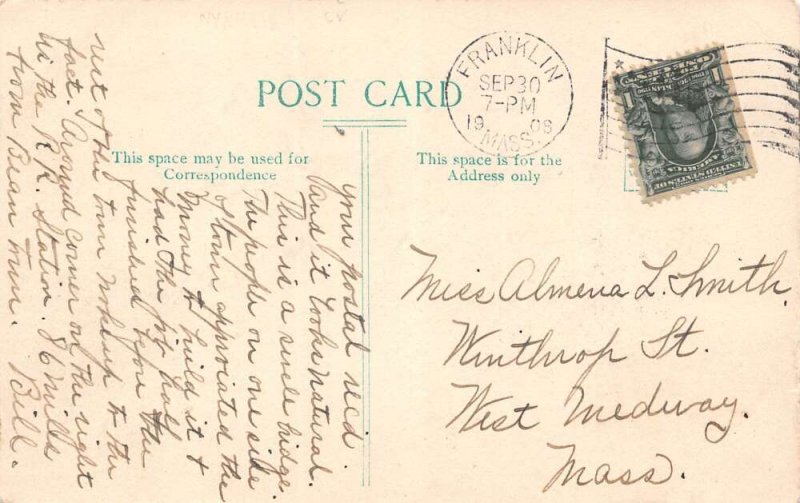 POST CARD
This space may be used for
Correspondence
This space is for the
Address only
FRANKLIN
SEP 30
7-PM
1908
MASS.
Miss Almena L. Smith.
Winthrop St.
West Medway.
Mass.
your postal rec'd
and it looks natural.
This is a single
The people on one side
of town appropriated the
Money to build it &
had the job half
finished before the
rest of the town woke up to the
fact. Around corner on the right
is the R.R. Station. 86 miles
from Bean Town. Bill.